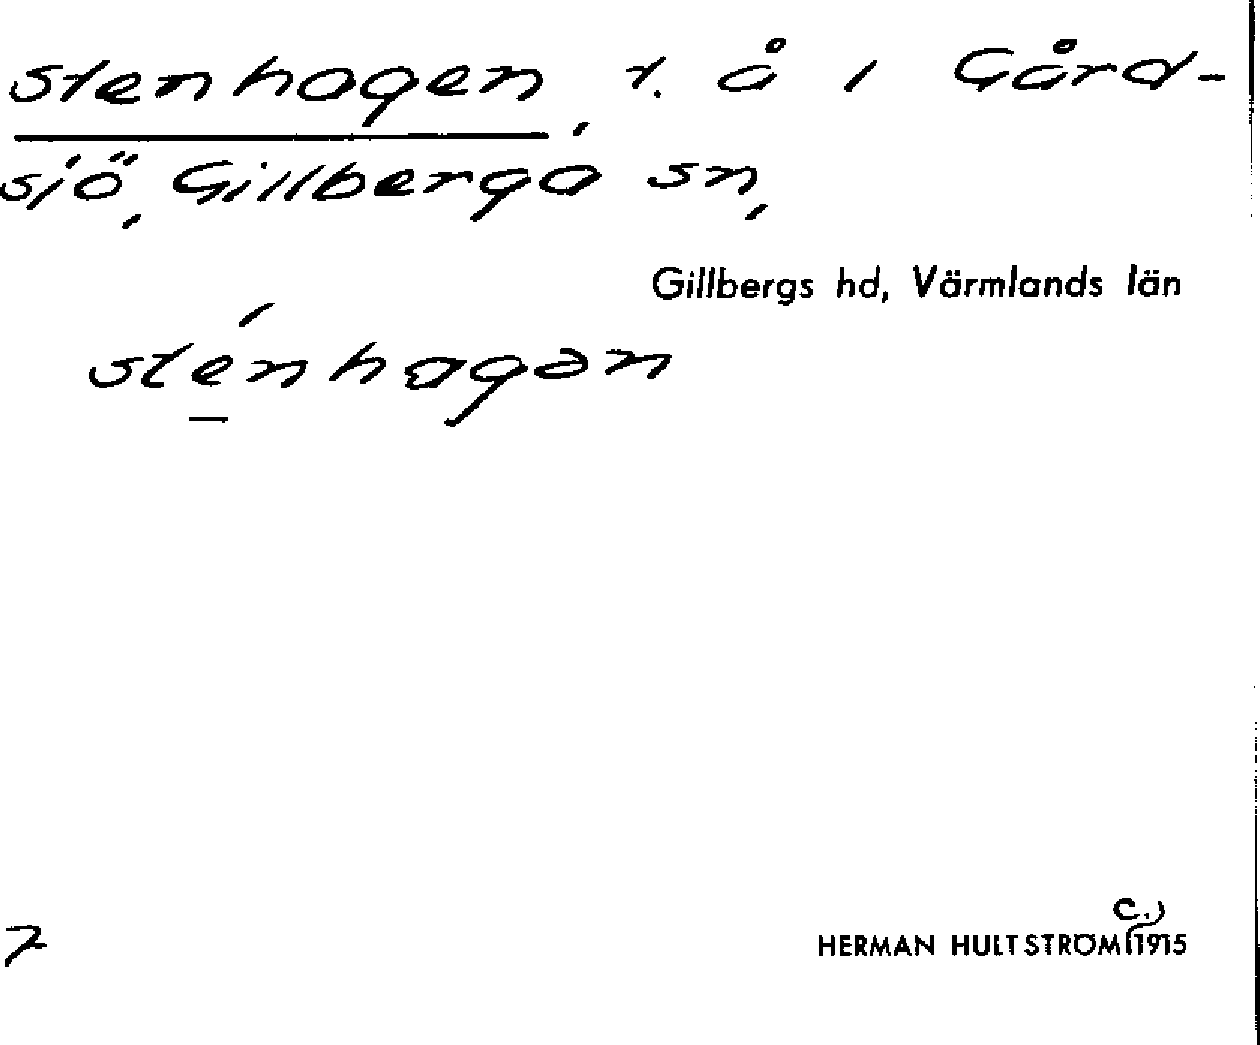 stenhagen, t. å i Gård-
sjö, Gillberga sn,
Gillbergs hd, Värmlands län
sténhagan
7
HERMAN HULTSTRÖM c. 1915